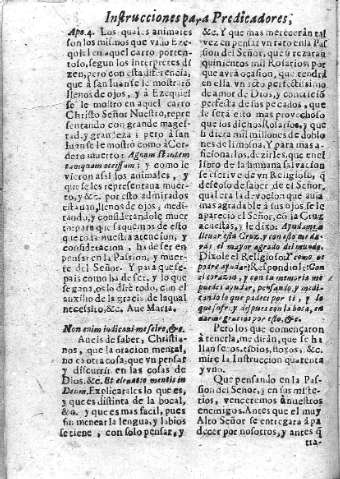 Instrucciones para Predicadores,
Apo.4. Los quales animales
son los mismos que vido Eze-
quiel en aquel carro porten-
toso, segun los interpretes di
zen, pero con esta diferencia,
que à san Iuan se le mostrarõ
llenos de ojos, y à Ezequiel
se le mostrò en aquel carro
Christo Señor Nuestro, repre
sentando con grande mages-
tad, y grandeza: pero à san
Iuan se le mostrò como à Cor-
dero muerto: Agnum stantem
tamquam occisum: y como le
vieron assi los animales, y
que se les representava muer-
to, y &c. por esto admirados
estavan llenos de ojos, medi-
tando, y considerandole muer
to: para que saquemos de esto
que toda nuestra atencion, y
consideracion, ha de ser en
pensar en la Passion, y muer-
te del Señor. Y para que se-
pais como ha de ser, y lo que
se gana, os lo dirè todo, con el
auxilio de la gracia de la qual
necessito, &c. Ave Maria.
Non enim iudicavi me scire, &c.
Aveis de saber, Christia-
nos, que la oracion mental,
no es otra cosa, que un pensar
y discurrir en las cosas de
Dios, &c. Est elevatio mentis in
Deum. Explicareles lo que es,
y que es distinta de la bocal,
&c. y que es mas facil, pues
sin menear la lengua, y labios
se tiene, con solo pensar, y
&c. Y que mas merecerán tal
vez en pensar un rato en la Pas
sion del Señor, que si rezaran
quinientos mil Rosarios por
que avrà ocasion, que tendrà
en ella un acto perfectissimo
de amor de Dios, y contricion
perfecta de sus pecados, que
le serà esto mas provechoso
que los dichos Rosarios, y que
si diera mil millones de doblo
nes de limosna. Y para mas a-
ficionarlos, dezirles, que en el
libro de la humana salvacion
se escrive de un Religioso, q̃
deseoso de saber, de el Señor,
qual era la devocion que avia
mas agradable à sus ojos, se le
apareciò el Señor, cõ la Cruz
acuestas, y le dixo: Ayudame à
llevar esta Cruz, y con esso me da-
ràs el mayor agrado del mundo.
Dixole el Religioso: Y como, os
podrè ayudar? Respondiole: Con
el coraçon, y con tu memoria me
puedes ayudar, pensando, y medi-
tando lo que padecì por ti, y lo
que sufrì, y despues con la boca, en
darme gracias por esto, &c.
Pero los que començaron
à tenerla, me diràn, que se ha
llan secos, tibios, floxos, &c.
mire la Instruccion quarenta
y uno.
Que pensando en la Pas
sion del Señor, y en sus miste-
rios, venceremos à nuestros
enemigos. Antes que el muy
Alto Señor se entregara à pa
decer por nosotros, y antes q̃
tra-